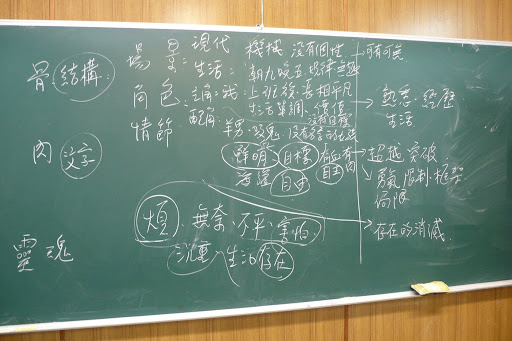 場景：現代 機械 沒有個性 可有可無
骨 結構 生活：朝九晚五 規律
角色 主角：我：上班族、長相平凡 熟悉、經歷
配角 生活單調、價值 生活
情節
肉 文字 鮮明 目標 超越 突破
自由 勇氣 限制 框架
侷限
煩 無奈、不平、害怕 存在的消滅
沉重 生活 存在
靈魂